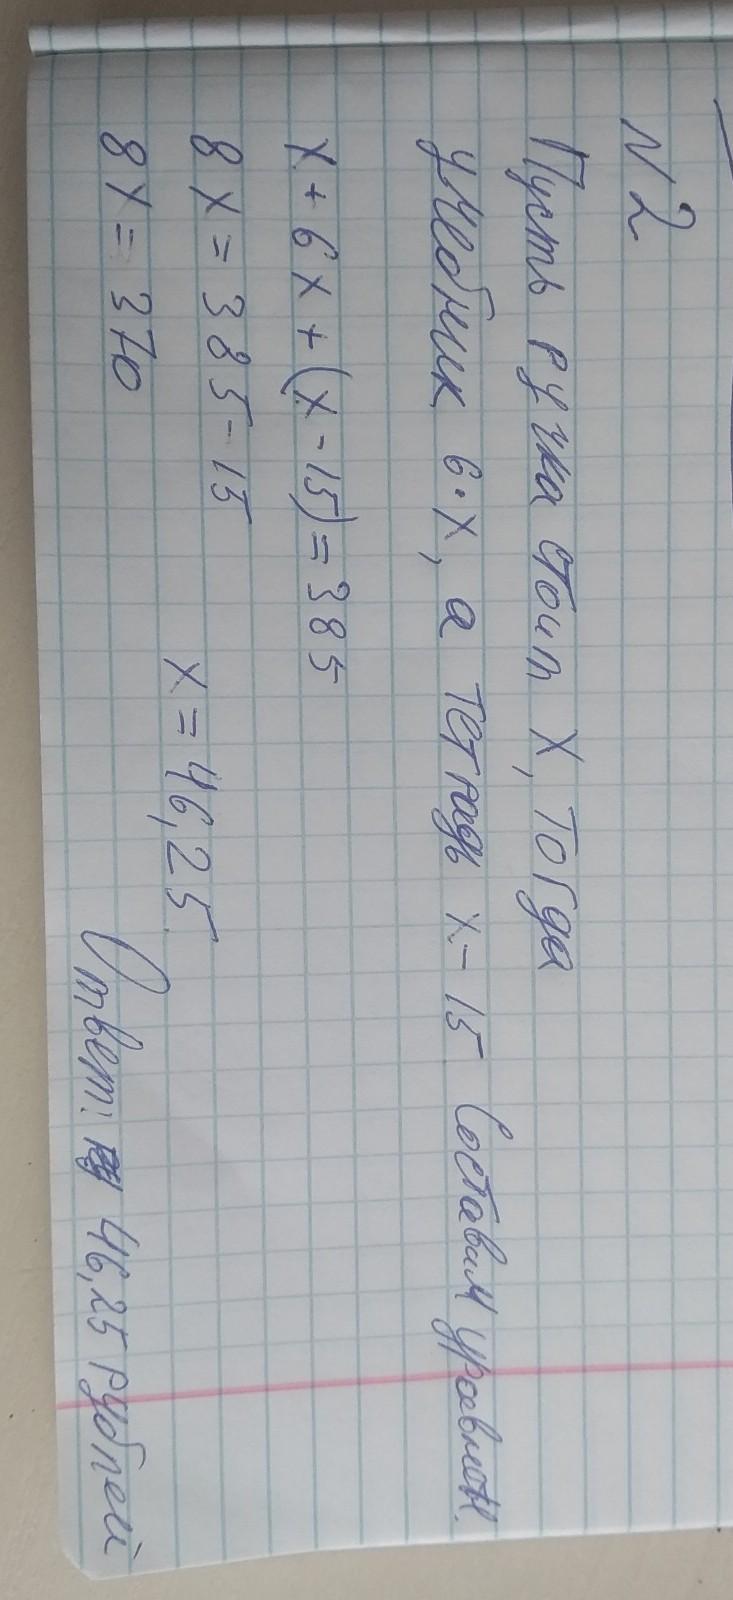 N 2
Пусть ручка стоит X, тогда
учебник 6·X, а тетрадь x-15 Составим уравнен.
X + 6X + (X - 15) = 385
8X = 385 - 15
8X = 370
X = 46,25
Ответ: 46,25 рублей